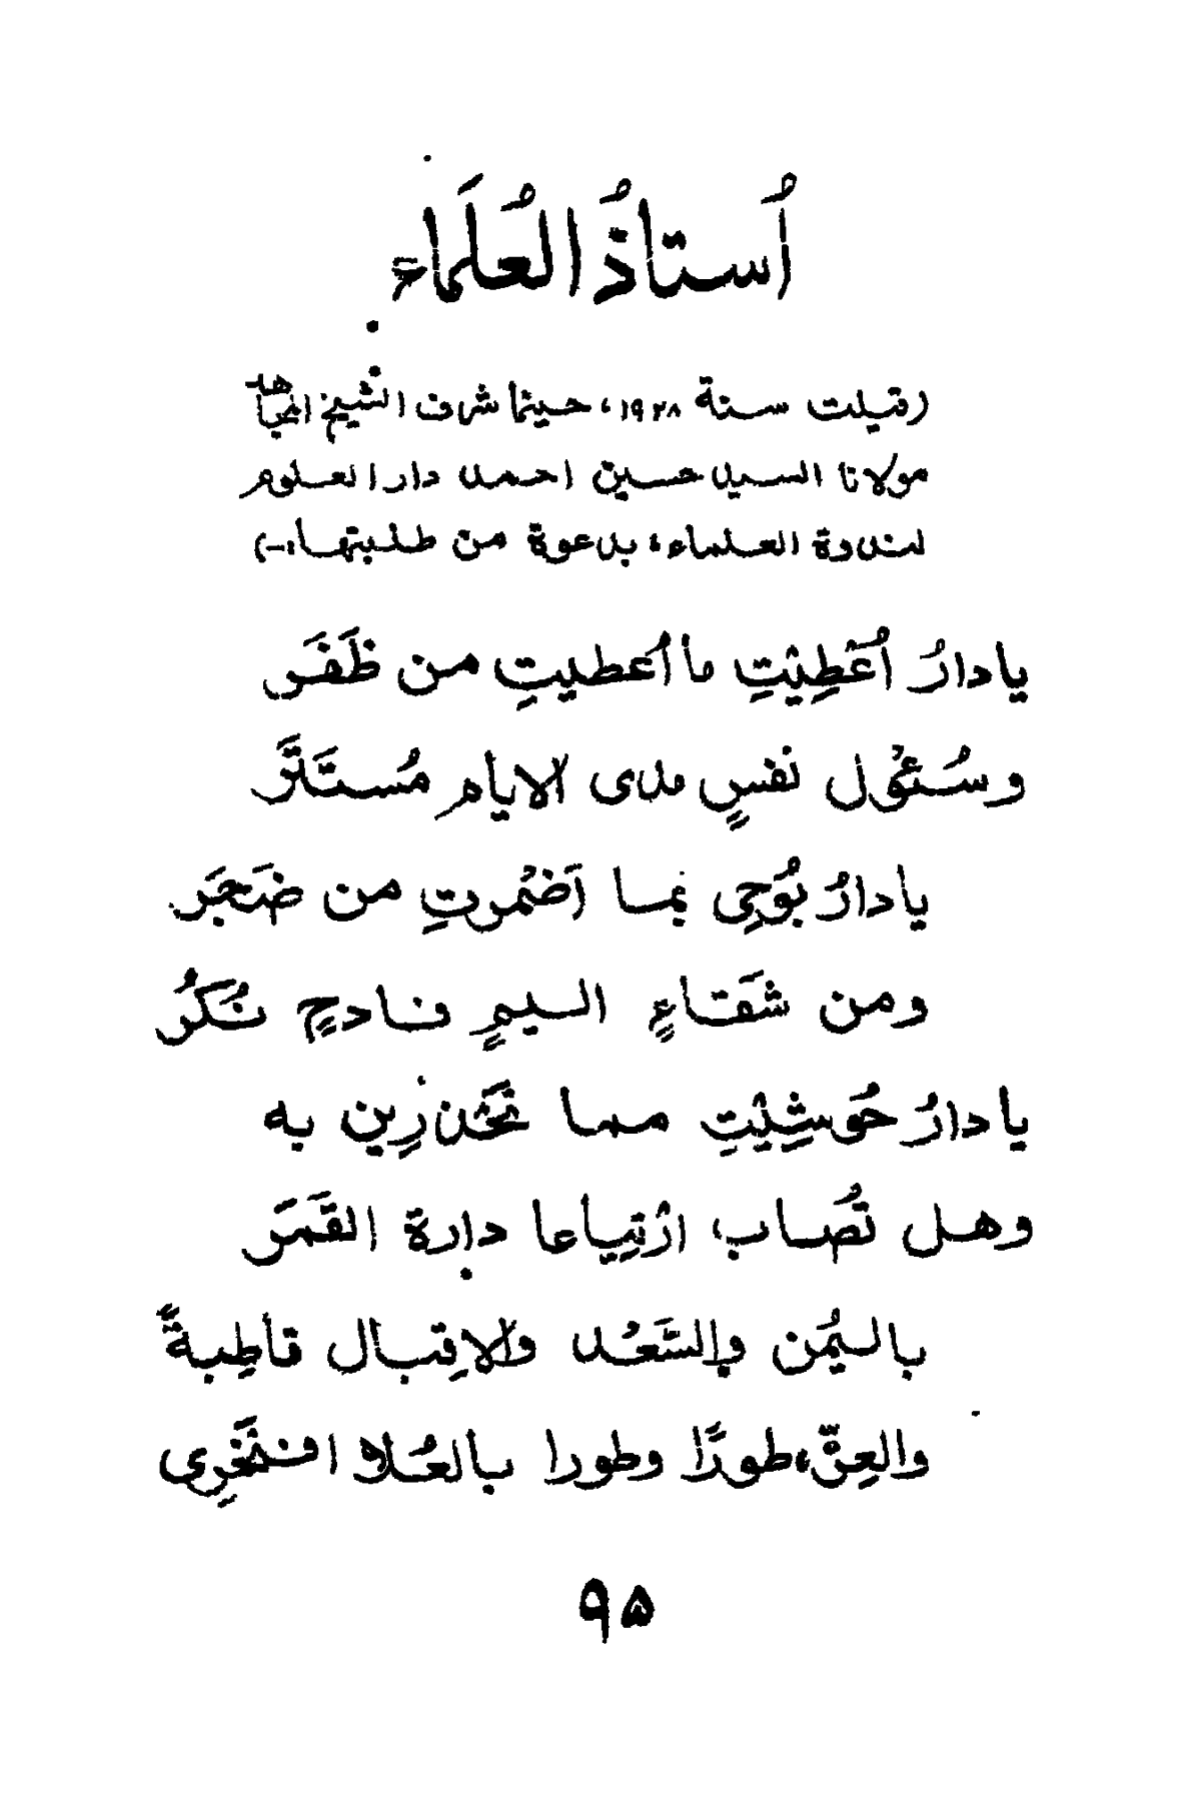 أُستاذُ العُلَماء
(قيلت سنة ١٩٢٨، حينما شرف الشيخ المجاهد
مولانا السيد حسين احمد دار العلوم
لندوة العلماء، بدعوة من طلبتها:-)
يا دارُ أُعْطِيْتِ ما أُعطيتِ من ظَفَر
وسُئْولِ نفسٍ مدى الايام مُستَتَر
يا دارُ بُوحِى بما أضْمرتِ من ضَجَر
ومن شَقاءٍ اليمٍ فادحٍ نُكُر
يا دارُ حُوشِيْتِ مما تَحْذرِين به
وهل تُصاب ارْتِياعا دارة القَمَر
باليُمن والسَّعْد والاقِبال قاطِبةً
والعِزّ، طورًا وطورا بالعُلا افتَخِرى
٩٥